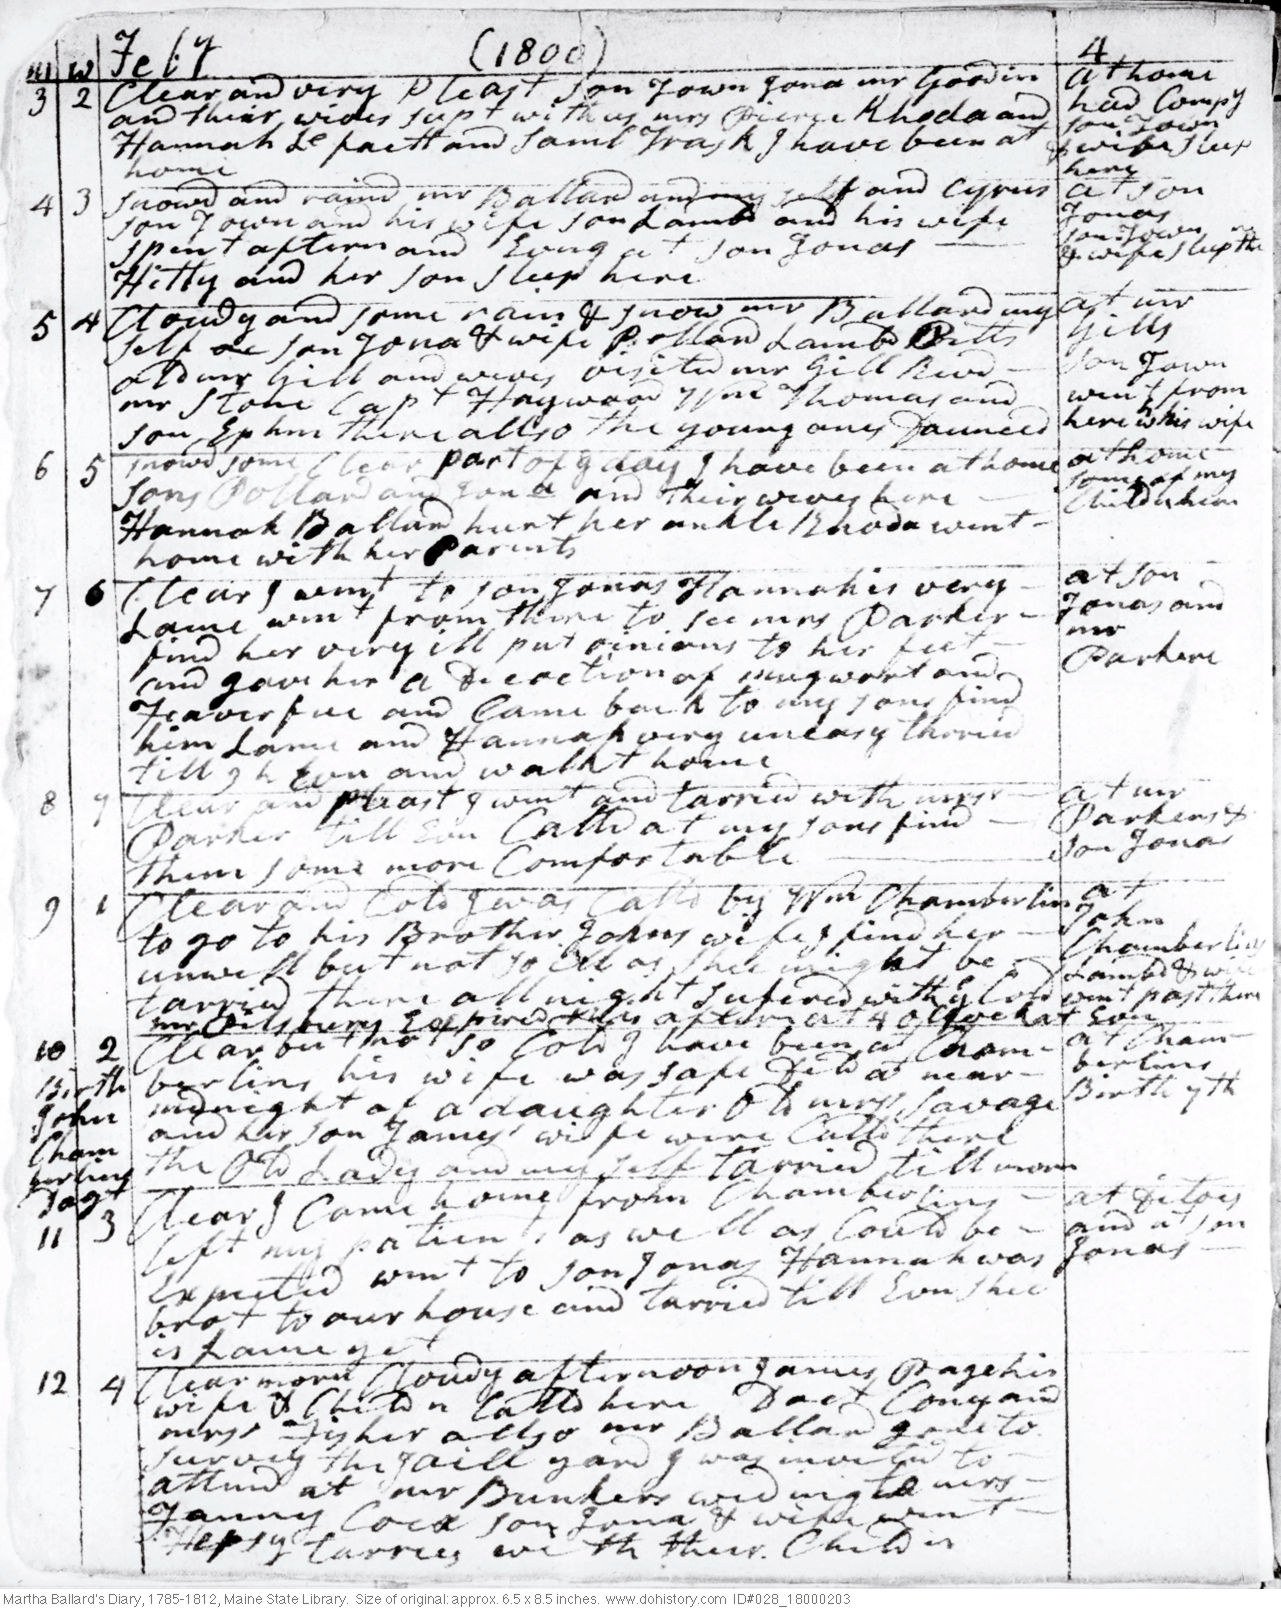 m w Feby (1800) 4
3 2 Clear and very Pleast Son Town Jona mr Goodin
and thier wives supt with us mrs Pierce Rhoda and
Hannah and Saml Trask I have been at
home
at home
had Compy
son Town
& wife sleep
here
4 3 snowd and raind mr Ballard and my self and Cyrus
son Town and his wife son Lambd and his wife
spent aftern and Evng at son Jonas
Hitty and her son sleep here
at son
Jonas
son Town
& wife sleep
5 4 Cloudy and some rain & snow mr Ballard my
self son Jona & wife Pollard Lambd Pitts
old mr Gill and wives visited mr Gill Revd
mr Stone Capt Haywood Wm Thomas and
son Ephm there allso the young ones Daunced
at mr
Gills
son Town
went from
here & his wife
6 5 snowd some Clear part of y day I have been at home
sons Pollard and Jona and their wives here
Hannah Ballard hurt her ankle Rhoda went
home with her Parents
at home
some of my
Childn here
7 6 Clear I went to son Jonas Hannah is very
Lame went from there to see mrs Parker
find her very ill put oinions to her feet
and gave her a Decoction of mugwort and
Feaverfue and Came back to my sons find
him Lame and Hannah very uneasy tarried
till 9 h Evn and walkt home
at son
Jonas and
mr
Parkers
8 7 Clear and pleast I went and tarried with mrss
Parker till Evn Calld at my sons find
them some more Comfortable
at mr
Parkers &
son Jonas
9 1 Clear and Cold I was Calld by Wm Chamberlin
to go to his Brother Johns wife I find her
unwell but not so Ill as shee might be
tarried there all night sufered with y Cold
mr Pilsbury Expired this aftern at 4 O Clock
at
John
Chamberlins
Lambd & wife
went past there
at Evn
10 2 Clear but not so Cold I have been at Cham
berlins his wife was safe Deld at near
midnight of a daughter Old mrss Savage
and her son James' wife were Calld there
the Old Lady and my self tarried till morn
Birth
John
Cham
berlins
Dagt
at Cham
berlins
Birth 7th
11 3 Clear I Came home from Chamberlins
left my patient as well as Could be
Expected went to son Jonas Hannah was
brot to our house and tarried till Evn shee
is Lame yet
at Ditoes
and at son
Jonas
12 4 Clear morn Cloudy afternoon James Page his
wife & Childn Calld here Doct Cony and
mrss Fisher allso mr Ballard gone to
survey the Jaill yard I was invited to
attend at mr Bunkers weding to mrs
Fanny Cocx son Jona & wife went
Hepsy tarries with their Childn
Martha Ballard's Diary, 1785-1812, Maine State Library. Size of original: approx. 6.5 x 8.5 inches. www.dohistory.com ID#028_18000203